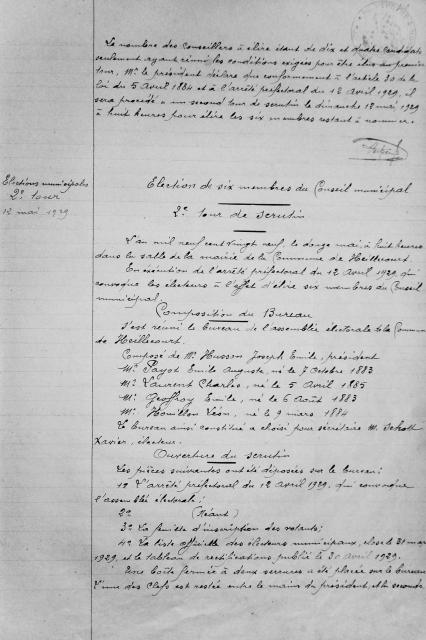 Le nombre des Conseillers à élire étant de dix et quatre candidats
seulement ayant réuni les conditions exigées pour être élus au premier
tour, Mr le président déclare que conformément à l'article 30 de la
loi du 5 Avril 1884 et à l'arrêté préfectoral du 12 Avril 1929, il
sera procédé à un second tour de scrutin le dimanche 12 mai 1929
à huit heures pour élire les six membres restant à nommer.
Elections municipales
2e tour
12 mai 1929
Election de six membres du Conseil municipal
2e tour de scrutin
L'an mil neuf cent vingt neuf, le douze mai, à huit heures
dans la salle de la mairie de la Commune de Heillecourt.
En exécution de l'arrêté préfectoral du 12 Avril 1929 qui
convoque les électeurs à l'effet d'élire six membres du Conseil
municipal,
Composition du Bureau
S'est réuni le bureau de l'assemblée électorale de la Commune
de Heillecourt.
Composé de Mr Husson Joseph Emile, président
Mr Payot Emile Auguste, né le 7 octobre 1883
Mr Laurent Charles, né le 5 Avril 1885
Mr Geoffroy Emile, né le 6 Août 1883
Mr Houillon Léon, né le 9 mars 1884
Le bureau ainsi constitué a choisi pour secrétaire M. Schott
Xavier, électeur.
Ouverture du scrutin
Les pièces suivantes ont été déposées sur le bureau:
1o L'arrêté préfectoral du 12 Avril 1929, qui convoque
l'assemblée électorale;
2o (Néant)
3o La feuille d'inscription des votants;
4o La liste officielle des électeurs municipaux, close le 31 mars
1929, et le tableau de rectifications publié le 30 avril 1929.
Une boîte fermée à deux serrures a été placée sur le bureau
L'une des Clefs est restée entre le mains du président, et la seconde